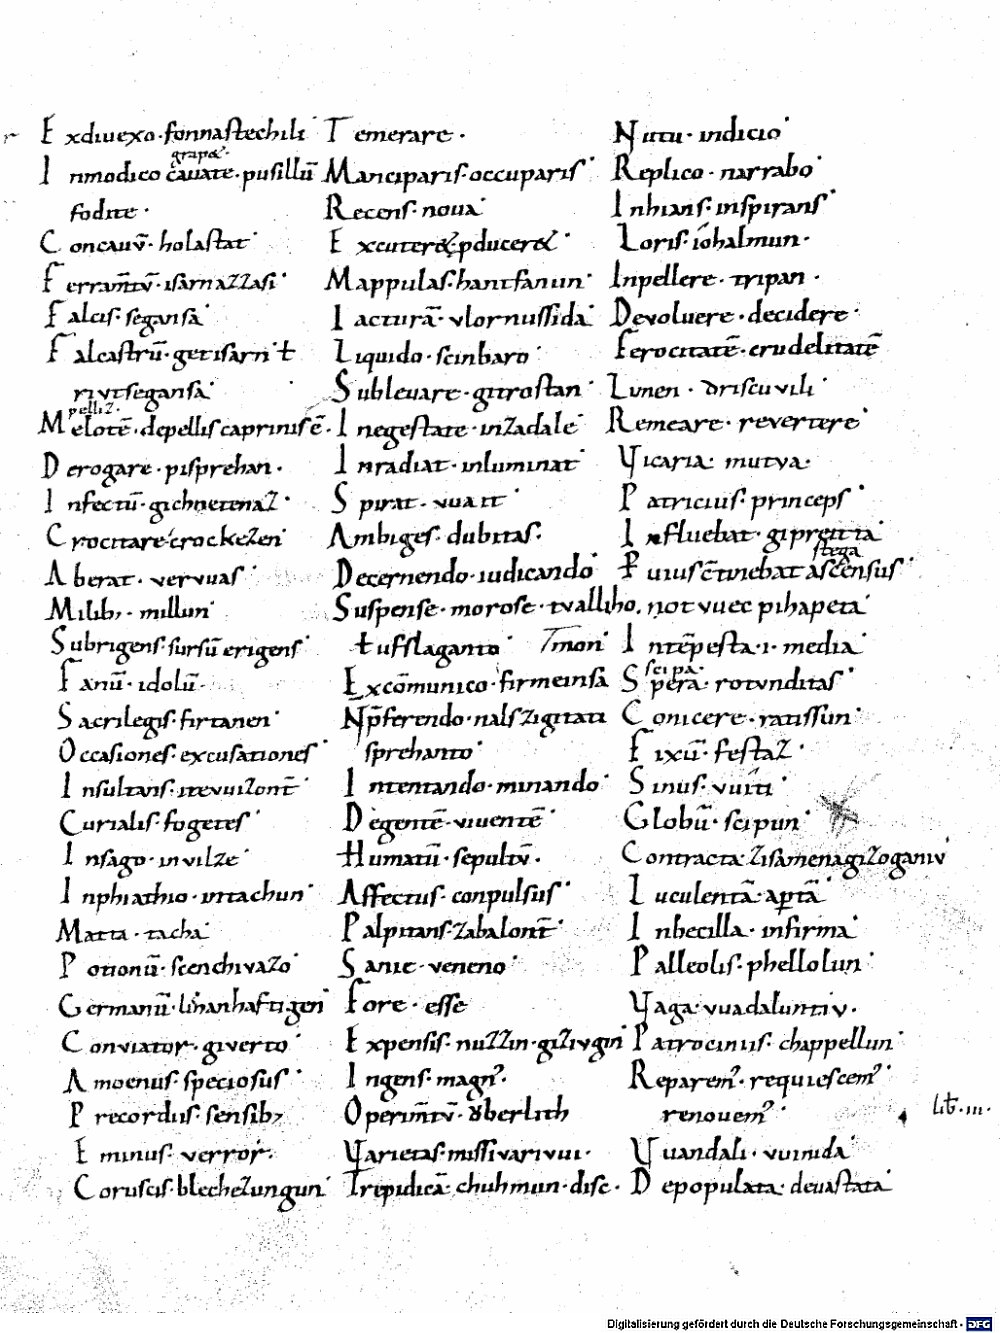 Exdiuexo· fonnastechili·
grapet·
Inmodico cauate· pusillū
fodite·
Concauū· holastat·
Ferram̄tū· isarnazzasi·
Falcis· segansa·
Falcastrū· getisarn· ł
riutsegansa·
pelliz·
Melotē· depellis caprinis ē·
Derogare· pisprehan·
Infectū· gichnetenaz·
Crocitare· crockezen·
Aberat· vervuas·
Milib;· millun·
Subrigens· sursū erigens·
Fanū· idolū·
Sacrilegis· firtanen·
Occasiones· excusationes·
Insultans· itevuizont̄·
Curialis· fogetes·
Insago· invilze·
Inphiathio· urtachun·
Matta· tacha·
Potionū· scenchivazo·
Germanū· lihanhaftigen·
Conviator· giverto·
Amoenus· speciosus·
Precordiis· sensib;
Eminus· verror·
Coruscis· blechezungun·
Temerare·
Manciparis· occuparis·
Recens· noua·
Excuteret· pduceret·
Mappulas· hantfanun·
Iacturā· vlornussida·
Liquido· scinbaro·
Subleuare· gitrostan·
Inegestate· inzadale·
Inradiat· inluminat·
Spirat· vuait·
Ambiges· dubitas·
Decernendo· iudicando·
Suspense· morose· tvalliho,
ł ufslaganto· Tmon·
Excōmunico· firmeinsa
Np̄ferendo· nalszigitati
sprehanto·
Intentando· minando·
Degentē· viventē·
Humatū· sepultū·
Affectus· conpulsus·
Palpitans· zabalont̄·
Sanie· veneno·
Fore· esse
Expensis· nuzzin· gizivgin·
Ingens· magn᷒·
Operim̄tū· vberlith
Varietas· missivarivui·
Trepidicā· chuhmun· disc·
Nutu· indicio·
Replico· narrabo·
Inhians· inspirans·
Loris· iohalmun·
Inpellere· tripan·
Devoluere· decidere·
Ferocitatē· crudelitatē
Lunen· driscuvili·
Remeare· revertere·
Vicaria· mutva·
Patricius· princeps·
Influebat· gipreitta·
stega
Puius c̄tinebat ascensus·
not vuec pihapeta·
Intēpesta· i· media
scipa·
Spera· rotunditas·
Conicere· ratissun·
Fixū· festaz·
Sinus· vuiti·
Globū· scipun·
Contracta· zisamenagizoganiv·
Luculentā· aptā·
Inbecilla· infirma·
Palleolis· phellolun·
Vaga· vuadaluntiv·
Patrociniis· chappellun·
Reparem᷒· requiescem᷒·
renouem᷒·
lib̄· iii·
Vuandali· vuinida·
Depopulata· deuastata·
Digitalisierung gefördert durch die Deutsche Forschungsgemeinschaft · DFG